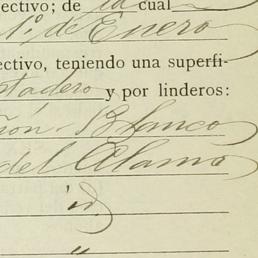 ectivo; de la cual
1º de Enero
ectivo, teniendo una superfi-
tadero y por linderos:
ñón Blanco
del Alamo
id.
"